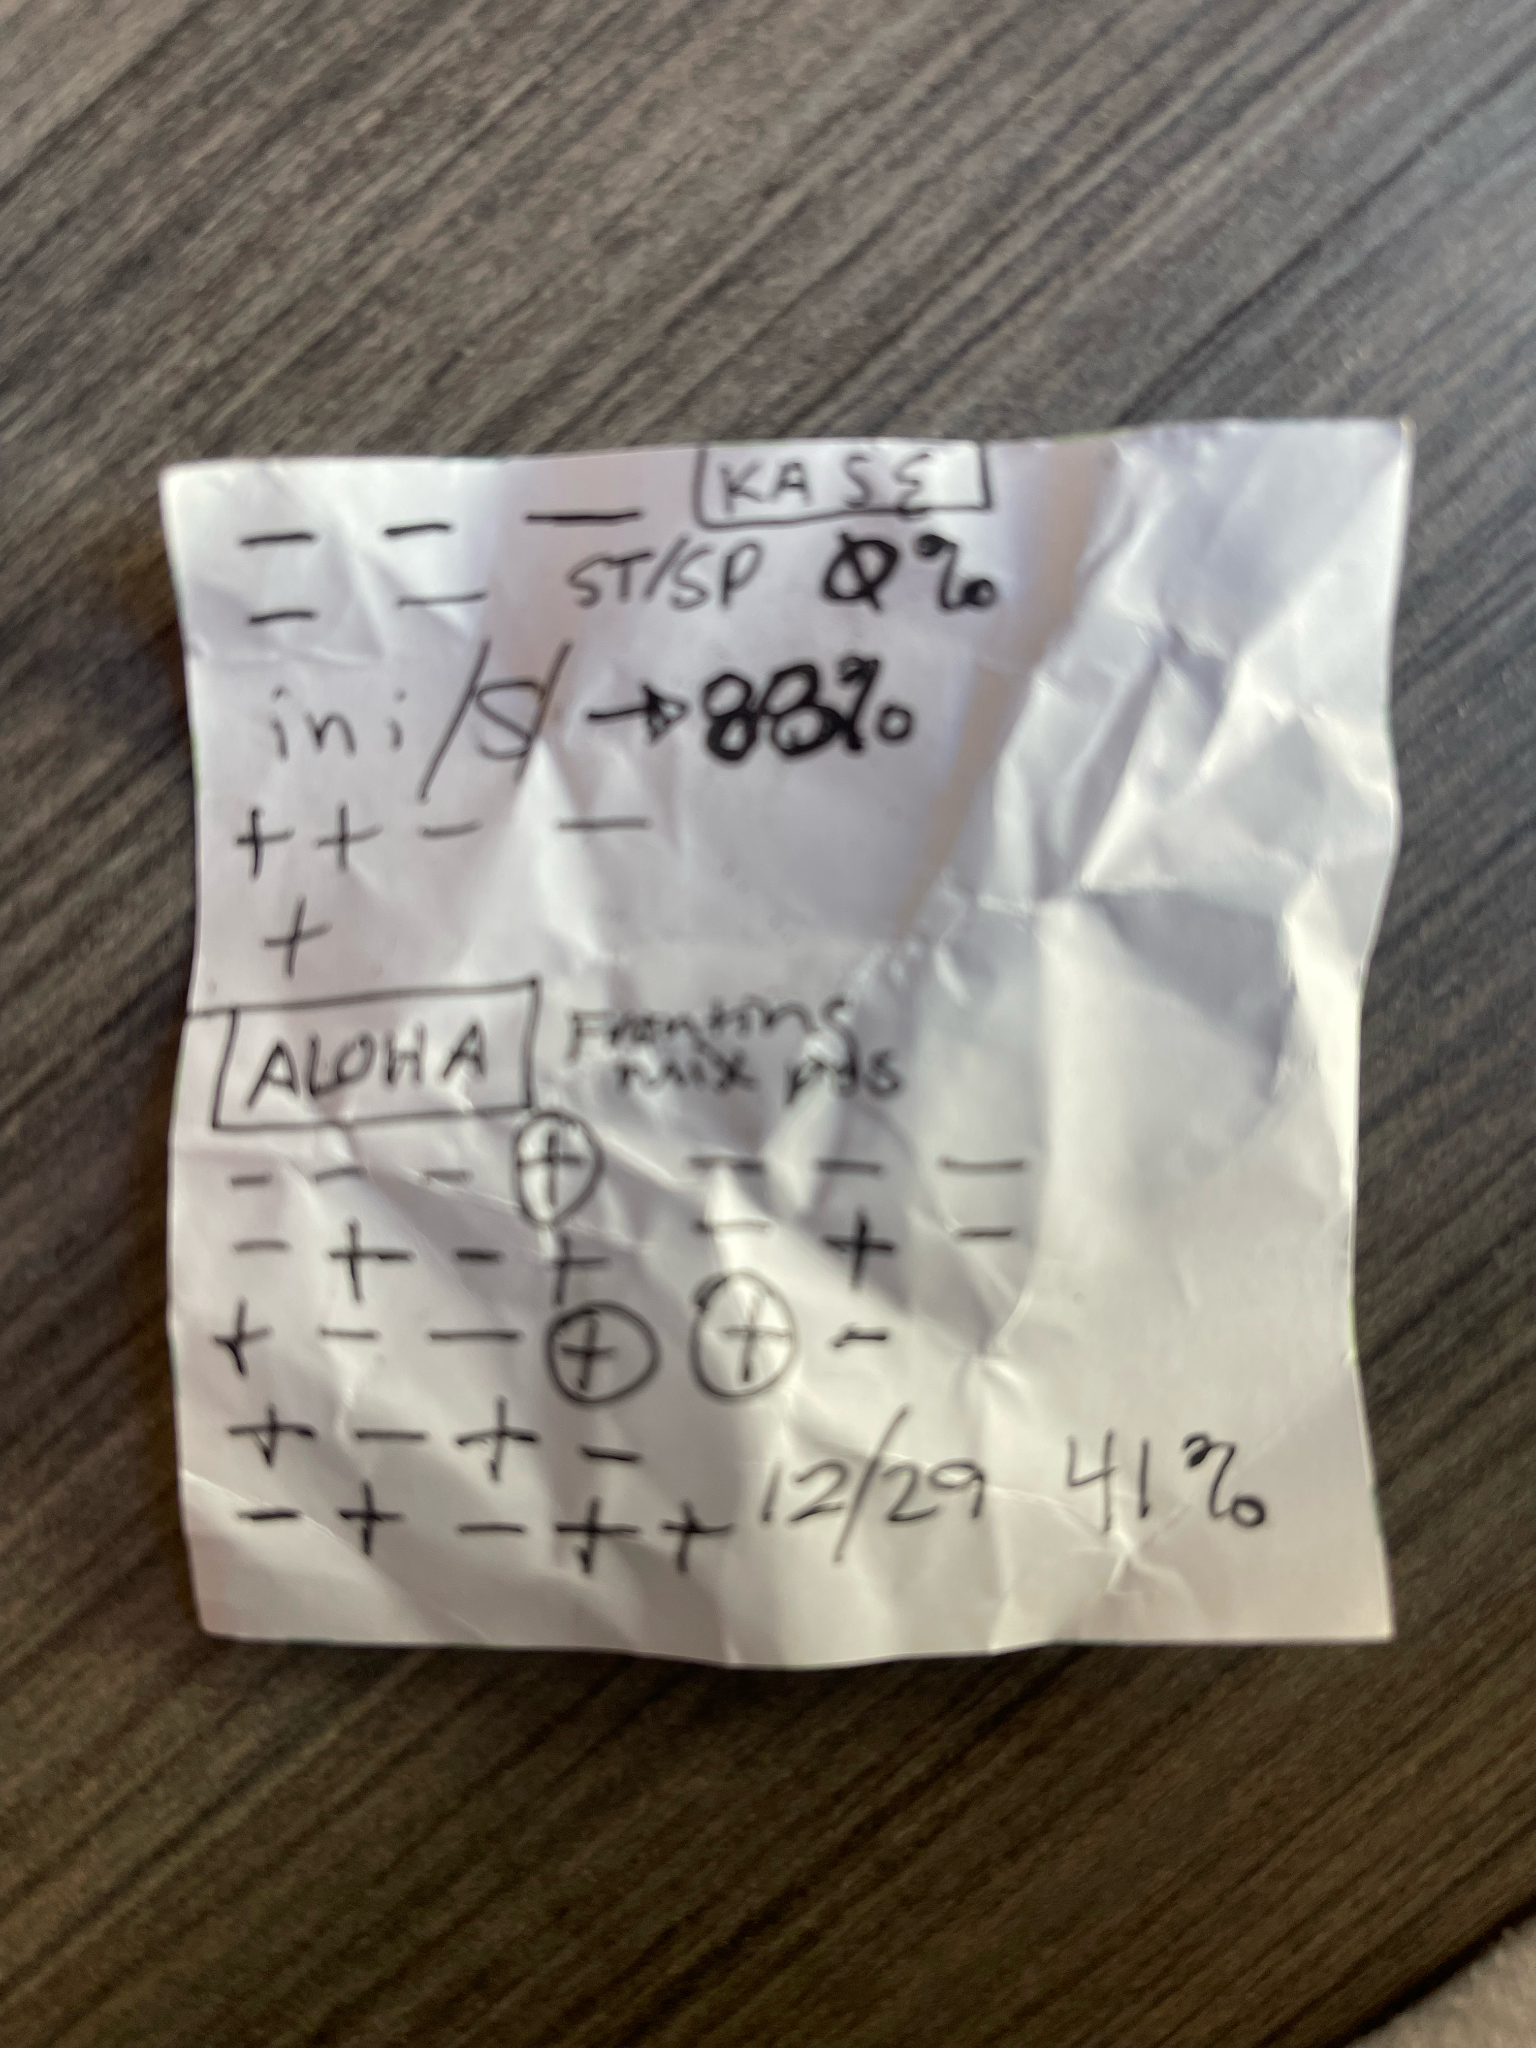 - - - KASE
- - ST/SP Ø%
ini /S/ → 88%
+ + - -
+
ALOHA Fronting
mix pds
- - - + - - -
- + - + - + -
+ - - + + -
+ - + -
- + - + + 12/29 41%